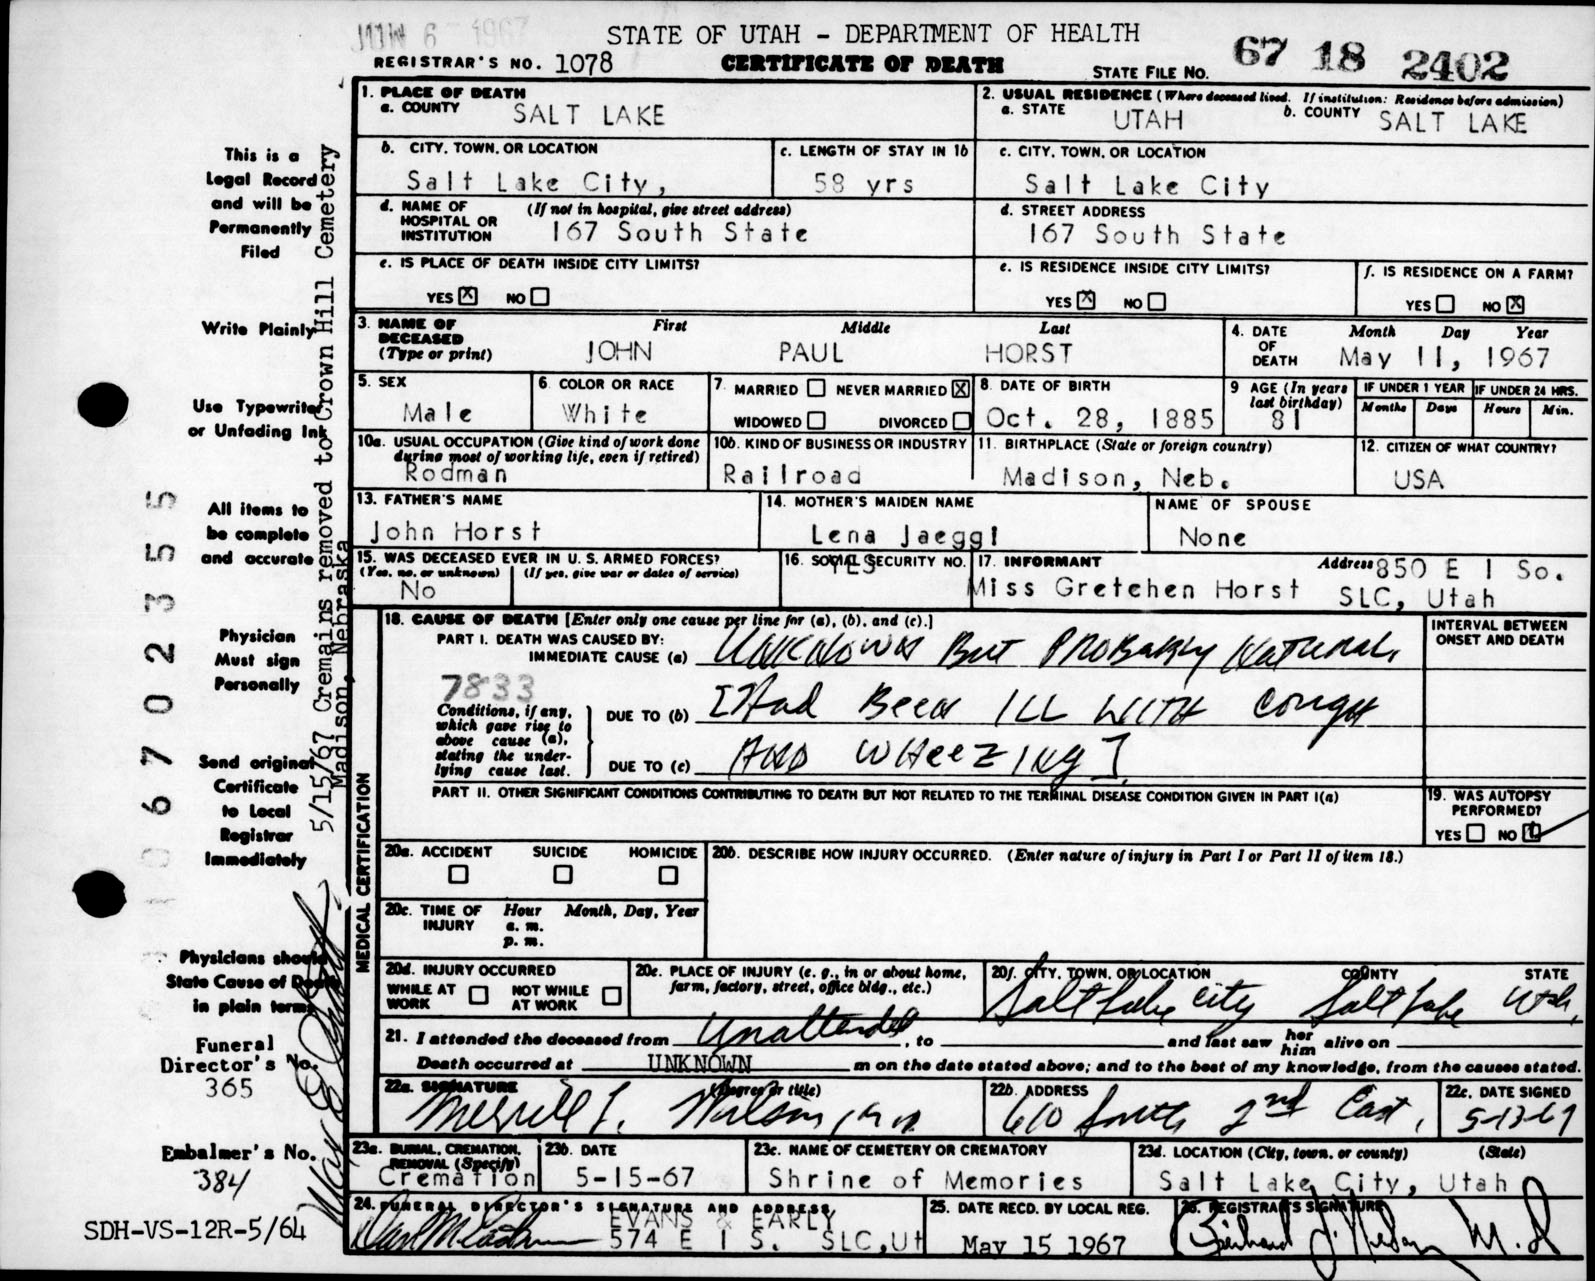 JUN 6 1967
STATE OF UTAH - DEPARTMENT OF HEALTH
REGISTRAR'S NO. 1078 CERTIFICATE OF DEATH STATE FILE NO. 67 18 2402
1. PLACE OF DEATH
a. COUNTY SALT LAKE
2. USUAL RESIDENCE (Where deceased lived. If institution: Residence before admission)
a. STATE UTAH b. COUNTY SALT LAKE
b. CITY, TOWN, OR LOCATION
Salt Lake City,
c. LENGTH OF STAY IN 1b
58 yrs
c. CITY, TOWN, OR LOCATION
Salt Lake City
d. NAME OF HOSPITAL OR INSTITUTION (If not in hospital, give street address)
167 South State
d. STREET ADDRESS
167 South State
e. IS PLACE OF DEATH INSIDE CITY LIMITS?
YES X NO
e. IS RESIDENCE INSIDE CITY LIMITS?
YES X NO
f. IS RESIDENCE ON A FARM?
YES NO X
3. NAME OF DECEASED (Type or print) First Middle Last
JOHN PAUL HORST
4. DATE OF DEATH Month Day Year
May 11, 1967
5. SEX
Male
6. COLOR OR RACE
White
7. MARRIED NEVER MARRIED X
WIDOWED DIVORCED
8. DATE OF BIRTH
Oct. 28, 1885
9 AGE (In years last birthday)
81
IF UNDER 1 YEAR IF UNDER 24 HRS.
Months Days Hours Min.
10a. USUAL OCCUPATION (Give kind of work done during most of working life, even if retired)
Rodman
10b. KIND OF BUSINESS OR INDUSTRY
Railroad
11. BIRTHPLACE (State or foreign country)
Madison, Neb.
12. CITIZEN OF WHAT COUNTRY?
USA
13. FATHER'S NAME
John Horst
14. MOTHER'S MAIDEN NAME
Lena Jaeggi
NAME OF SPOUSE
None
15. WAS DECEASED EVER IN U. S. ARMED FORCES?
(Yes, no, or unknown) (If yes, give war or dates of service)
No
16. SOCIAL SECURITY NO.
YES
17. INFORMANT Address 850 E 1 So.
Miss Gretchen Horst SLC, Utah
MEDICAL CERTIFICATION
18. CAUSE OF DEATH [Enter only one cause per line for (a), (b), and (c).]
INTERVAL BETWEEN ONSET AND DEATH
PART I. DEATH WAS CAUSED BY:
IMMEDIATE CAUSE (a) UNKNOWN But PROBABLY NATURAL,
7833
Conditions, if any, which gave rise to above cause (a), stating the underlying cause last.
DUE TO (b) [Had Been ILL WITH cough
DUE TO (c) AND WHEEZING]
PART II. OTHER SIGNIFICANT CONDITIONS CONTRIBUTING TO DEATH BUT NOT RELATED TO THE TERMINAL DISEASE CONDITION GIVEN IN PART I(a)
19. WAS AUTOPSY PERFORMED?
YES NO
20a. ACCIDENT SUICIDE HOMICIDE
20b. DESCRIBE HOW INJURY OCCURRED. (Enter nature of injury in Part I or Part II of item 18.)
20c. TIME OF INJURY Hour Month, Day, Year
a. m.
p. m.
20d. INJURY OCCURRED
WHILE AT WORK NOT WHILE AT WORK
20e. PLACE OF INJURY (e. g., in or about home, farm, factory, street, office bldg., etc.)
20f. CITY, TOWN, OR LOCATION COUNTY STATE
Salt Lake City Salt Lake Utah,
21. I attended the deceased from Unattended, to and last saw her him alive on
Death occurred at UNKNOWN m on the date stated above; and to the best of my knowledge, from the causes stated.
22a. SIGNATURE (Degree or title)
Merrill L. Wilson, M.D.
22b. ADDRESS
610 South 2nd East,
22c. DATE SIGNED
5-13-67
23a. BURIAL, CREMATION, REMOVAL (Specify)
Cremation
23b. DATE
5-15-67
23c. NAME OF CEMETERY OR CREMATORY
Shrine of Memories
23d. LOCATION (City, town, or county) (State)
Salt Lake City, Utah
24. FUNERAL DIRECTOR'S SIGNATURE AND ADDRESS
EVANS & EARLY
574 E 1 S. SLC, Ut
25. DATE RECD. BY LOCAL REG.
May 15 1967
26. REGISTRAR'S SIGNATURE
M. D
This is a
Legal Record
and will be
Permanently
Filed
Write Plainly
Use Typewriter
or Unfading Ink
All items to
be complete
and accurate
Physician
Must sign
Personally
Send original
Certificate
to Local
Registrar
Immediately
Physicians should
State Cause of Death
in plain terms
Funeral
Director's No.
365
Embalmer's No.
384
SDH-VS-12R-5/64
067023555
5/15/67 Cremains removed to Crown Hill Cemetery
Madison, Nebraska